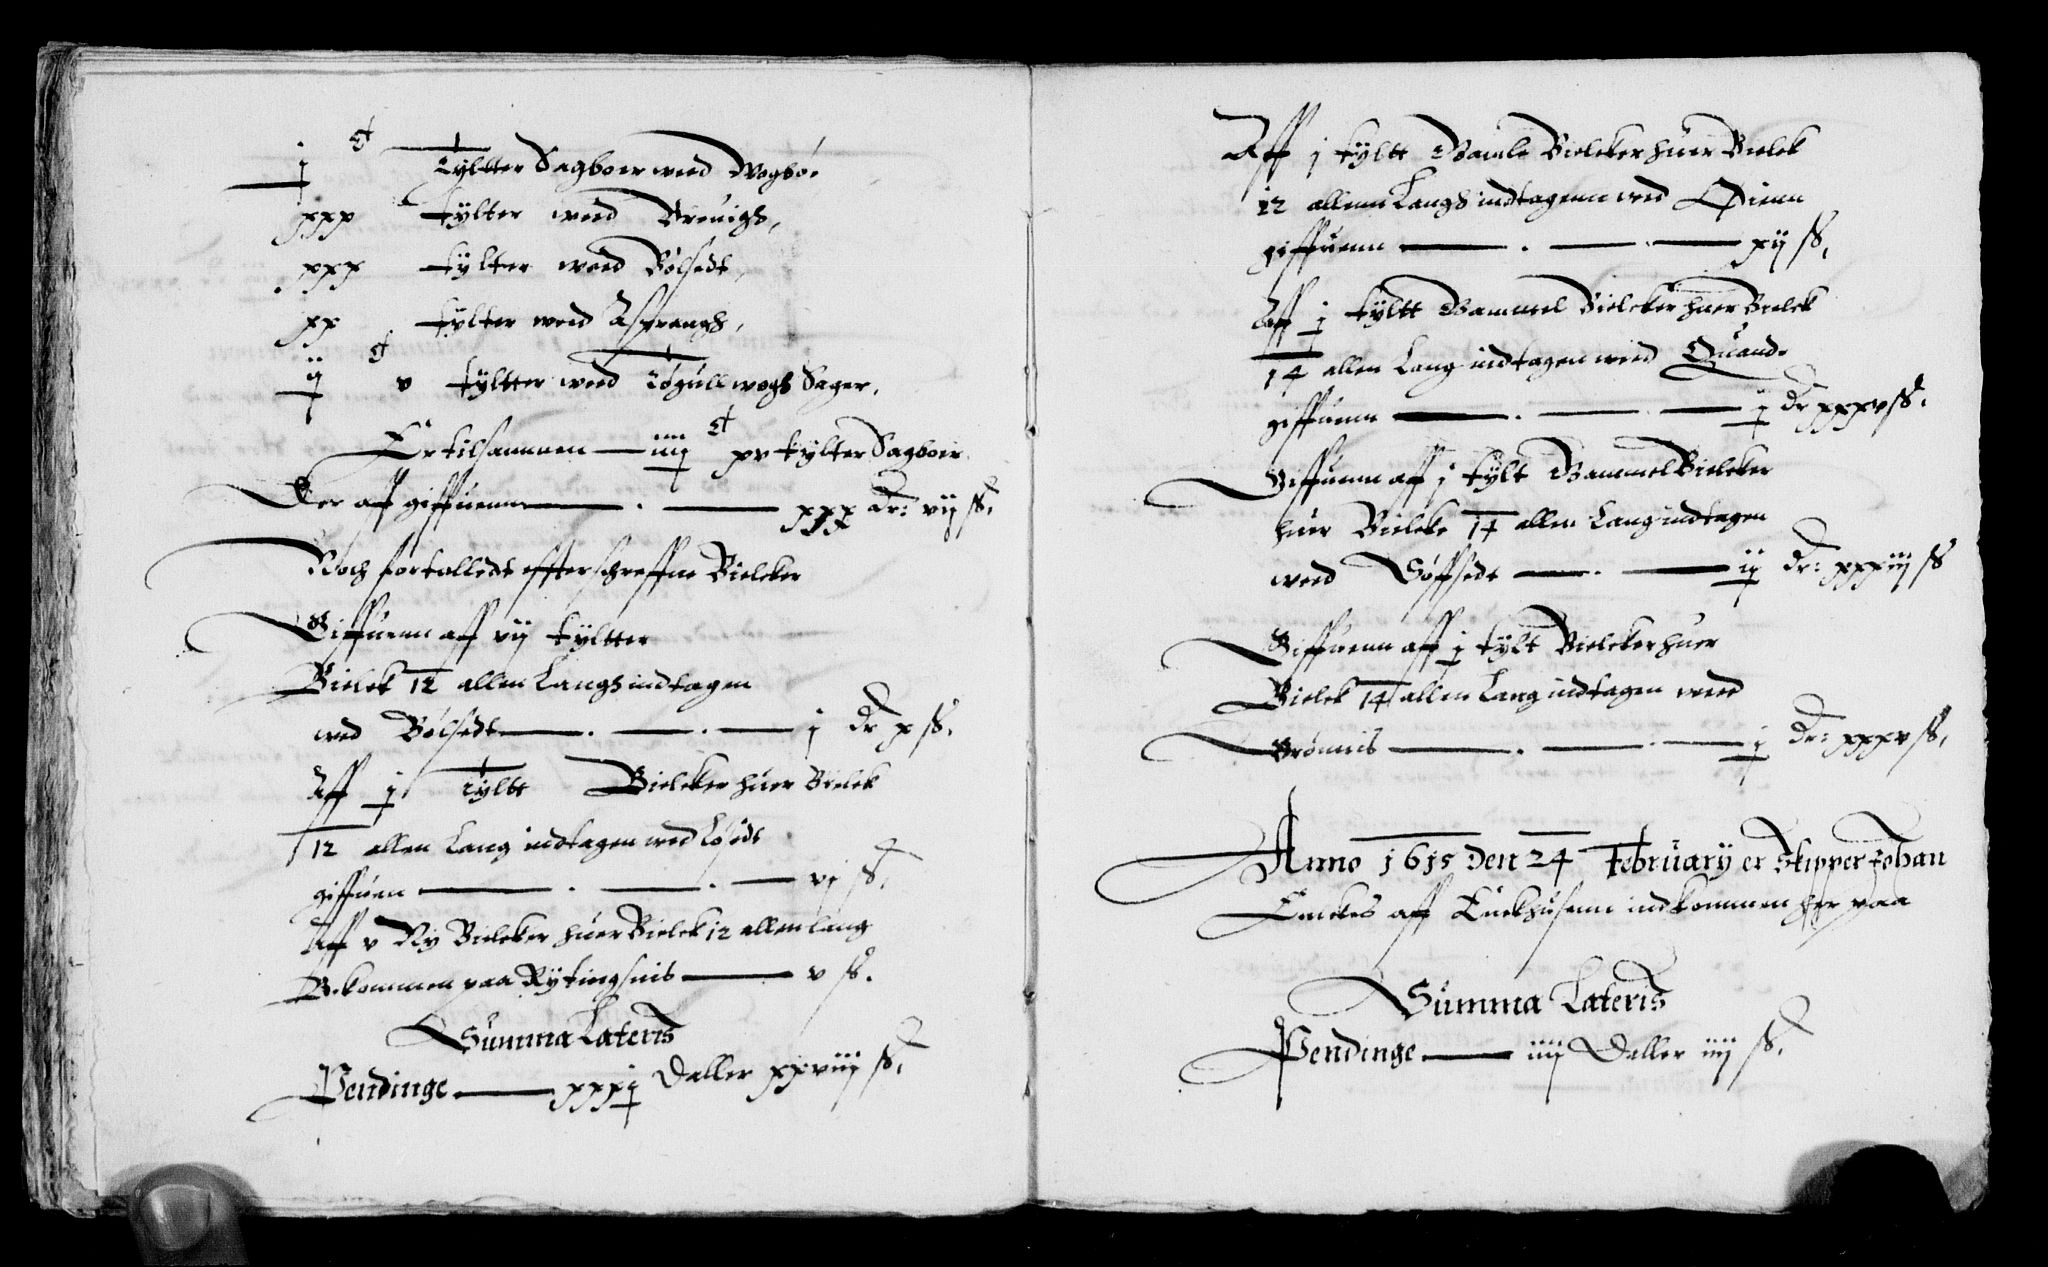 j ᶜ Tyltter Sagboer wed Wogbø.
xxx tylter wed Vreuigh,
xxx tylter wed Bølsedt,
xx tylter wed Asprangh,
ij ᶜ v tyltter wed Tøgullwogh Sager,
Er tilsammen — iiij ᶜ xv tylter Sagboer
Der aff giffuenn — . — xxx dr: vij ß,
Noch fortolledt effterschreffne Bielcker
Giffuenn aff vij tyltter
Bielck 12 allen Langh indtagen
wed Bølsedt — . — . — j dr x ß.
Aff j Tyltt Bielcker huer Bielck
12 allen Lang indtagen wed Løsedt
giffuen — . — . — vj ß.
Aff v Ny Bielcker huer Bielck 12 allen lang
Bekommen paa Rytingsuis — v ß.
Summa Lateris
Pendinge — xxxj Daller xxviij ß,
Aff j tyltt Gamle Bielcker huer Bielck
12 allenn Langh indtagenn wed Øienn
giffuenn — . — . — xij ß,
Aff j tyltt Gammel Bielcker huer Bielck
14 allen Lang indtagen wed Quand.
giffuenn — . — . — j dr xxxv ß.
Giffuenn aff j tylt Gammel Bielcker
huer Bielcke 14 allen Lang indtagen
wed Søffsedt — . — ij dr: xxxiij ß
Giffuenn aff j tylt Bielcker huer
Bielck 14 allen Lang indtagen wed
Grømuis — . — . — j dr: xxxv ß,
Anno 1615 den 24 February er Skipper Johan
Emckes aff Enckhusenn indkommen her paa
Summa Lateris
Pendinge — iiij Daller iiij ß.